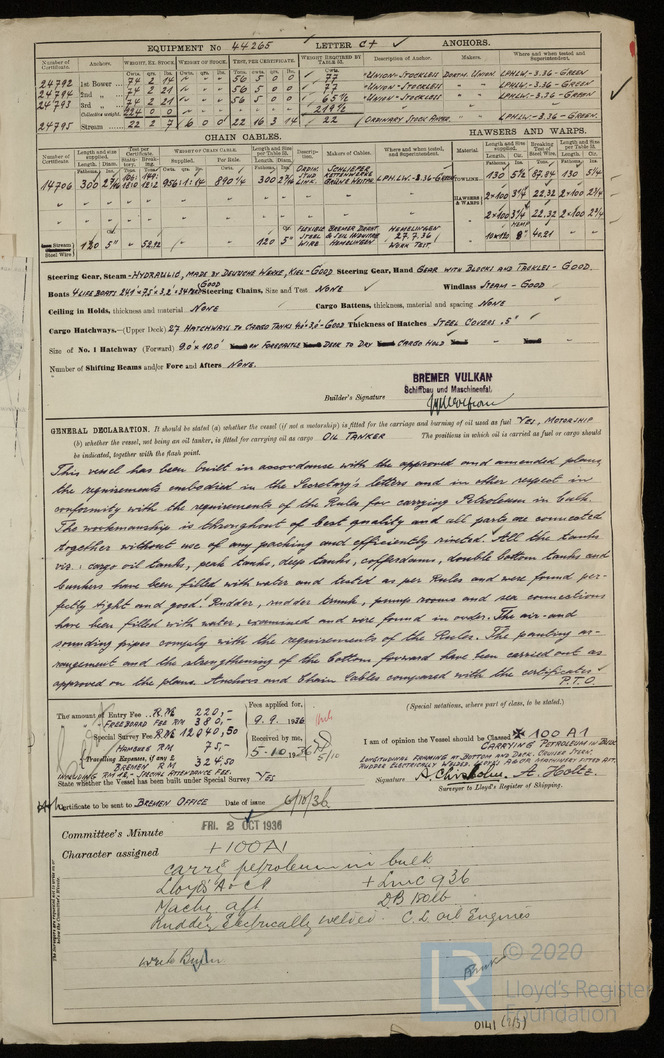 EQUIPMENT No 44265 LETTER C+ ✓ ANCHORS.
Number of Certificate. Anchors. WEIGHT, EX. STOCK WEIGHT OF STOCK. TEST, PER CERTIFICATE. WEIGHT REQUIRED BY TABLE 53. Description of Anchor. Makers. Where and when tested and Superintendent.
24792 1st Bower ... 74 2 14 " " " 56 5 0 0 77 "UNION-STOCKLESS DORTM. UNION LPHLW-3.36-GREEN
24794 2nd " ... 74 2 21 " " " 56 5 0 0 77 "UNION-STOCKLESS " " LPHLW-3.36-GREEN
24793 3rd " ... 74 2 21 " " " 56 5 0 0 65½ "UNION-STOCKLESS " " LPHLW-3.36-GREEN
Collective weight. 224 0 0 219½
24795 Stream ... 22 2 7 6 0 0 22 16 3 14 22 ORDINARY STOCK ANCHOR " " LPHLW-3.36-GREEN.
CHAIN CABLES. HAWSERS AND WARPS.
Number of Certificate. Length and size supplied. Test per Certificate. WEIGHT OF CHAIN CABLE. Length and size per Table 53. Description. Makers of Cables. Where and when tested, and Superintendent. Material Length and Size supplied. Breaking Test of Steel Wire. Length and Size per Table 53.
Supplied. Per Rule.
14706 300 956:1:14 890¼ 300 ORDIN. STUD LINK. SCHLIEPER KETTENWERKE GRÜNE WESTPH. LPHLW-3.36-GREEN TOWLINE 130 5½ 87.84 130 5¼
HAWSERS & WARPS 2×100 3¼ 22.32 2×100 2¾
2×100 3¼ 22.32 2×100 2¾
Stream Steel Wire 120 5" 52.92 120 5" FLEXIBLE STEEL WIRE BREMER DRAHT & SEIL INDUSTRIE HEMELINGEN HEMELINGEN 27.7.36 WORK TEST. HEMP 8" 40.21
Steering Gear, Steam-HYDRAULIC, MADE BY DEUTSCHE WERKE, KIEL-GOOD Steering Gear, Hand GEAR WITH BLOCKS AND TACKLES - GOOD.
Boats 4 LIFE BOATS GOOD Steering Chains, Size and Test NONE ✓ Windlass STEAM - GOOD
Ceiling in Holds, thickness and material NONE Cargo Battens, thickness, material and spacing NONE ✓
Cargo Hatchways.—(Upper Deck) 27 HATCHWAYS TO CARGO TANKS 4'0"×3'0"-GOOD Thickness of Hatches STEEL COVERS .5" ✓
Size of No. 1 Hatchway (Forward) 9.0'×10.0' ON FORECASTLE DECK TO DRY CARGO HOLD
Number of Shifting Beams and/or Fore and Afters NONE.
BREMER VULKAN
Schiffbau und Maschinenfab.
Builder's Signature
GENERAL DECLARATION. It should be stated (a) whether the vessel (if not a motorship) is fitted for the carriage and burning of oil used as fuel YES, MOTORSHIP
(b) whether the vessel, not being an oil tanker, is fitted for carrying oil as cargo OIL TANKER The positions in which oil is carried as fuel or cargo should
be indicated, together with the flash point.
This vessel has been built in accordance with the approved and amended plans,
the requirements embodied in the Secretary's letters and in other respect in
conformity with the requirements of the Rules for carrying Petroleum in bulk.
The workmanship is throughout of best quality and all parts are connected
together without use of any packing and efficiently riveted. All the tanks
viz: cargo oil tanks, peak tanks, deep tanks, cofferdams, double bottom tanks and
bunkers have been filled with water and tested as per Rules and were found per-
fectly tight and good. Rudder, rudder trunk, pump rooms and sea connections
have been filled with water, examined and were found in order. The air-and
sounding pipes comply with the requirements of the Rules. The panting ar-
rangement and the strengthening of the bottom forward have been carried out as
approved on the plans. Anchors and Chain Cables compared with the certificates.
P.T.O.
The amount of Entry Fee .. R.M 220,-
FREEBOARD FEE RM 380,-
Special Survey Fee. R.M 12040,50
HAMBURG RM 75,-
Travelling Expenses, if any
BREMEN RM 324,50
INCLUDING RM 12,- SPECIAL ATTENDANCE FEE.
Fees applied for,
9.9.1936
Received by me,
5-10-1936
5/10
State whether the Vessel has been built under Special Survey YES
(Special notations, where part of class, to be stated.)
I am of opinion the Vessel should be Classed ✠ 100 A1
CARRYING PETROLEUM IN BULK
LONGITUDINAL FRAMING AT BOTTOM AND DECK. CRUISER STERN.
RUDDER ELECTRICALLY WELDED. LLOYDS A&CP MACHINERY FITTED AFT.
Signature A. Chisholm. A. Holtz.
Surveyor to Lloyd's Register of Shipping.
Certificate to be sent to BREMEN OFFICE Date of issue 6/10/36
Committee's Minute FRI. 2 OCT 1936
Character assigned +100A1
Carrg petroleum in bulk
Lloyd's A & CP + LMC 9.36
Machy aft DB
Rudder Electrically Welded. C.L. oil Engines
© 2020
LR
Lloyd's Register
Foundation
0141 (3/3)